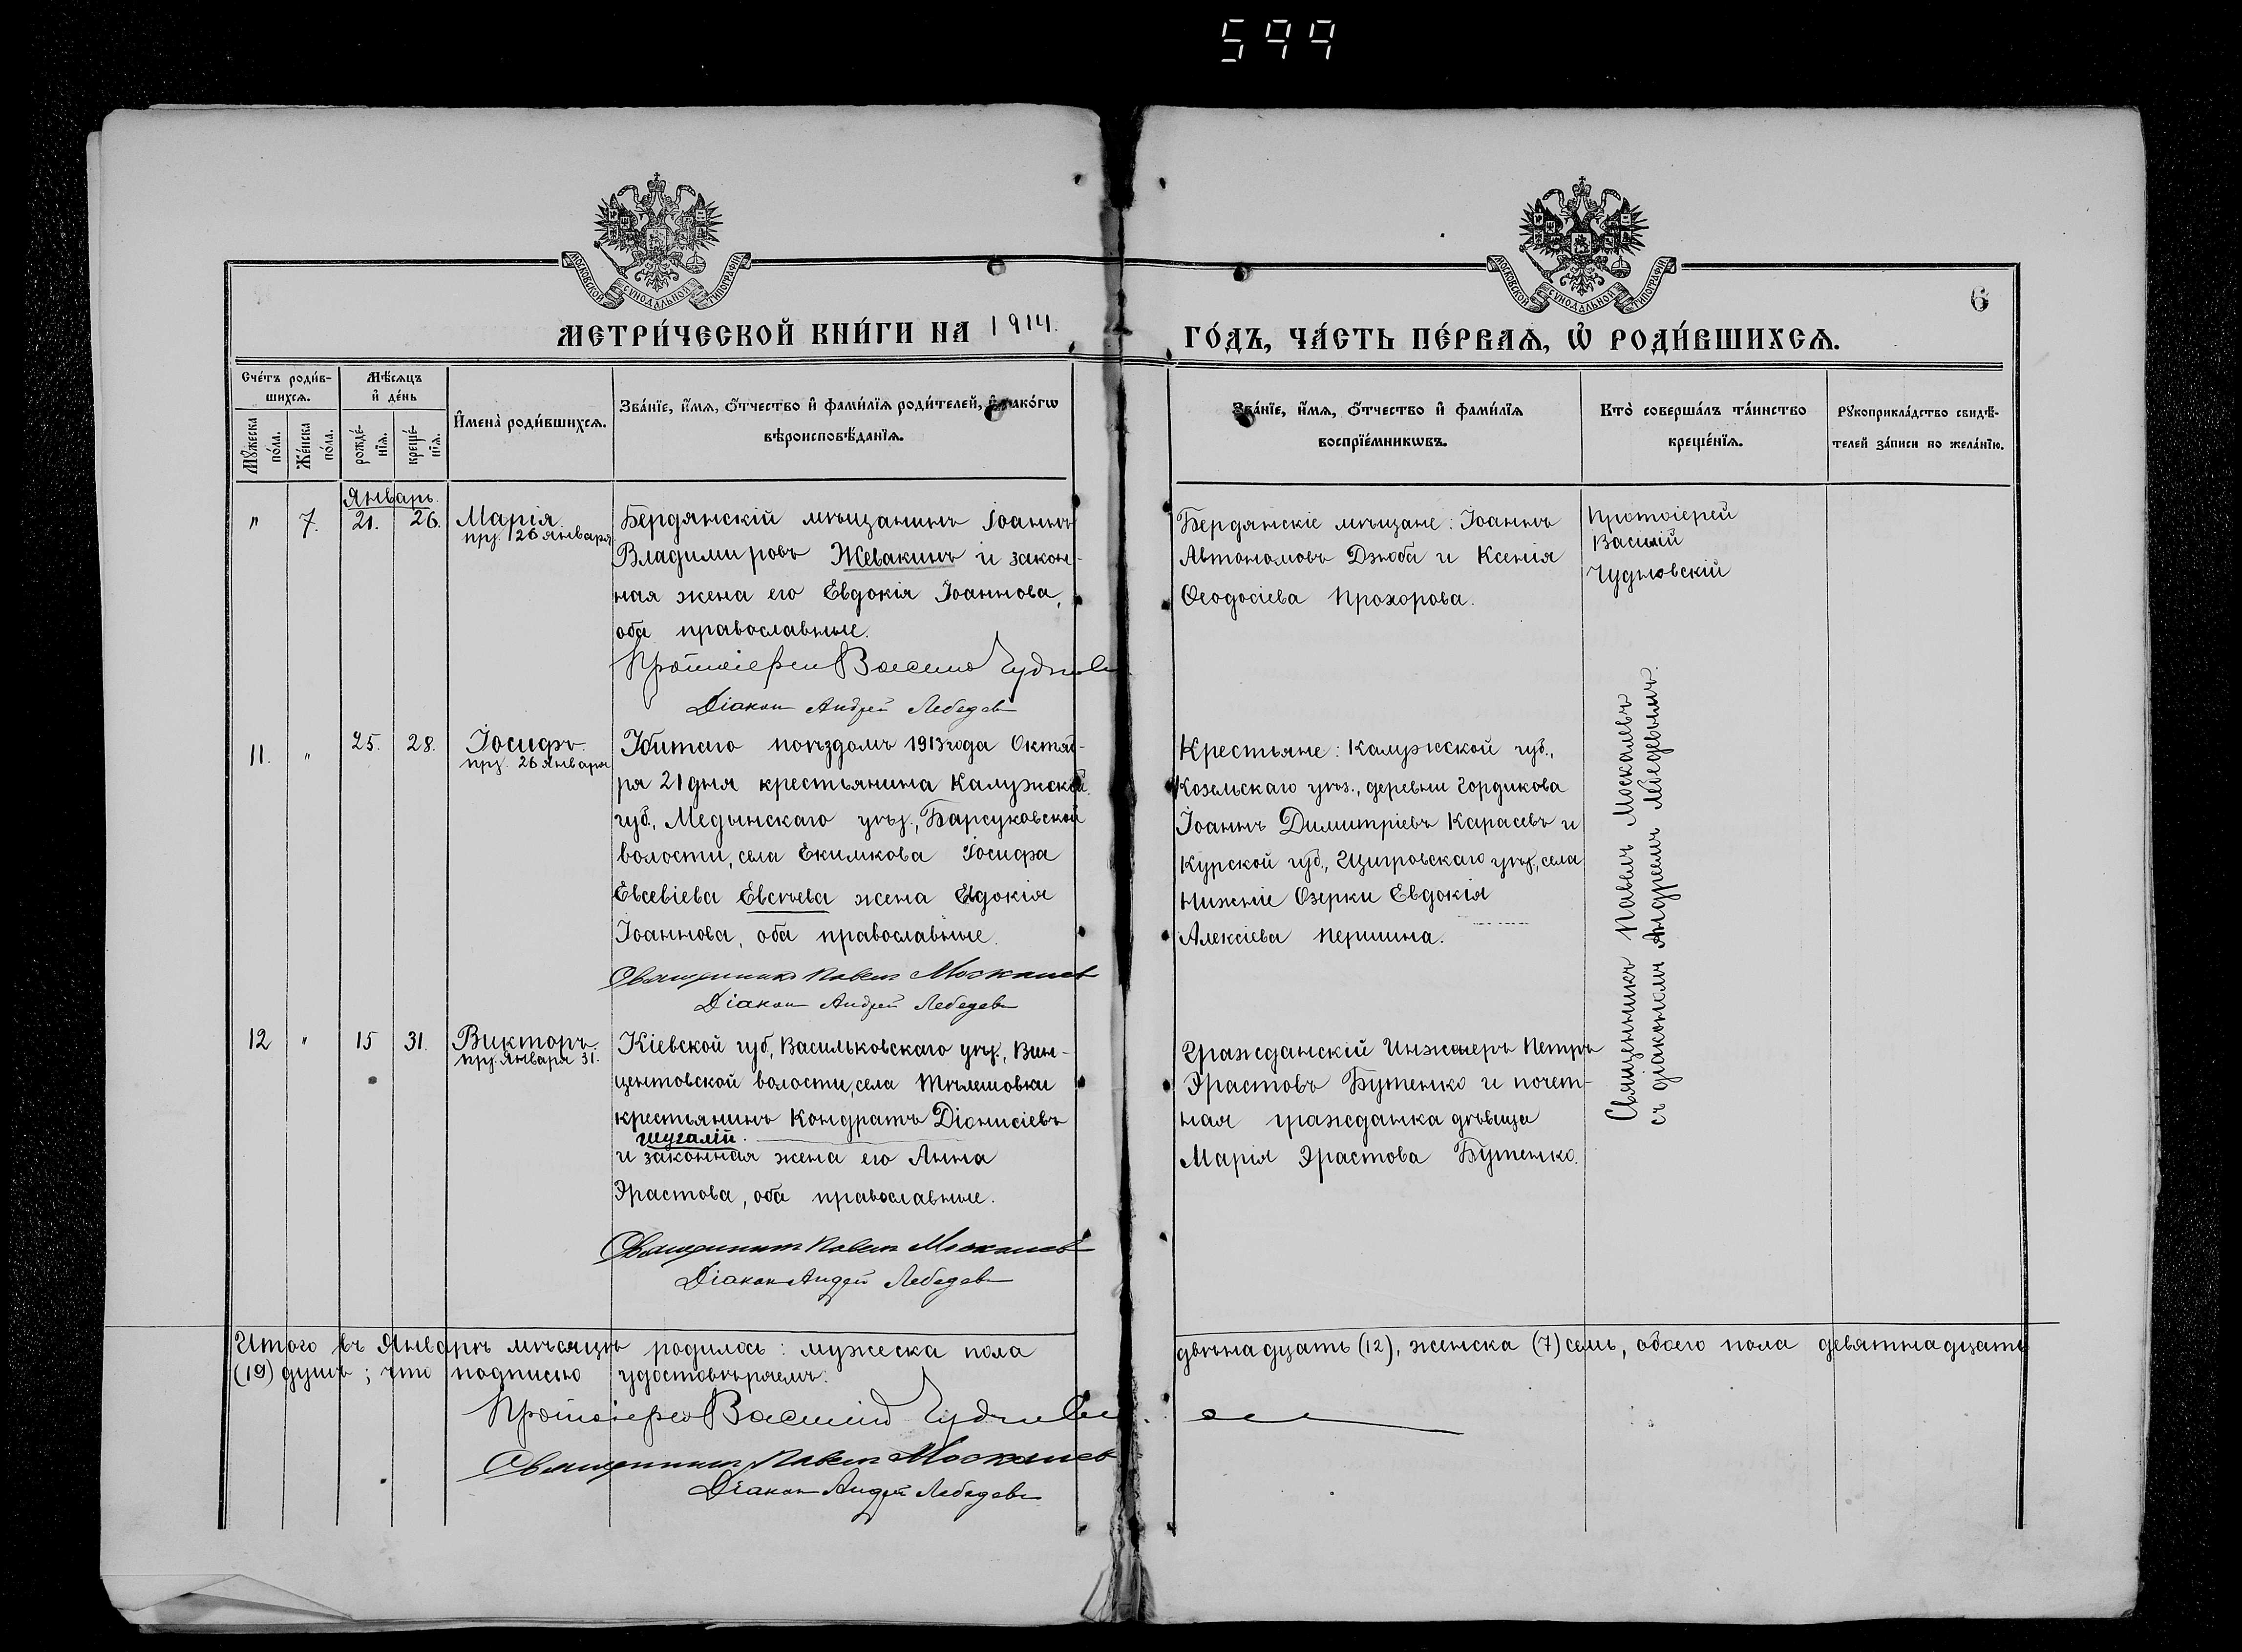 599
МОСКОВСКОЙ СѴНОДАЛЬНОЙ ТИПОГРАФІИ
МОСКОВСКОЙ СѴНОДАЛЬНОЙ ТИПОГРАФІИ
6
МЕТРИ́ЧЕСКОЙ КНИ́ГИ НА 1914.
ГО́ДЪ, ЧА́СТЬ ПЕ́РВАѦ, Ѽ РОДИ́ВШИХСѦ.
Сче́тъ роди́в-
шихсѧ.
Мѣ́сѧцъ
и҆ де́нь
Мꙋ́жеска
по́ла.
Же́нска
по́ла.
рожде́-
нїѧ.
креще́-
нїѧ.
И҆мена̀ роди́вшихсѧ.
Зва́нїе, и҆́мѧ, ѻ҆́тчество и҆ фами́лїѧ роди́телей, и҆ како́гѡ
вѣроисповѣ́данїѧ.
Зва́нїе, и҆́мѧ, ѻ҆́тчество и҆ фами́лїѧ
воспрїе́мникѡвъ.
Кто̀ соверша́лъ та́инство
креще́нїѧ.
Рꙋкоприкла́дство свидѣ́-
телей за́писи по жела́нїю.
Январь.
" 7. 21. 26. Марія
пр. 26 января
Бердянскій мѣщанинъ Іоаннъ
Владимировъ Жевакинъ и закон-
ная жена его Евдокія Іоаннова,
оба православные.
Протоіерей Василій Чудновскій
Діаконъ Андрей Лебедевъ
Бердянскіе мѣщане: Іоаннъ
Автономовъ Дзюба и Ксенія
Ѳеодосіева Прохорова.
Протоіерей
Василій
Чудновскій
11. " 25. 28. Іосифъ
пр. 26 января
Убитаго поѣздомъ 1913 года Октяб-
ря 21 дня крестьянина Калужской
губ., Медынскаго уѣз., Барсуковской
волости, села Екимкова Іосифа
Евсевіева Евсѣева жена Евдокія
Іоаннова, оба православные.
Священникъ Павелъ Москалевъ
Діаконъ Андрей Лебедевъ
Крестьяне: Калужской губ.,
Козельскаго уѣз., деревни Гордикова
Іоаннъ Димитріевъ Карасевъ и
Курской губ., Щигровскаго уѣз., села
Нижніе Озерки Евдокія
Алексіева Першина.
Священникъ Павелъ Москалевъ
съ діакономъ Андреемъ Лебедевымъ.
12 " 15 31. Викторъ
пр. Января 31.
Кіевской губ., Васильковскаго уѣз., Вин-
центовской волости, села Телешовки
крестьянинъ Кондратъ Діонисіевъ
Шугалій.
и законная жена его Анна
Эрастова, оба православные.
Священникъ Павелъ Москалевъ
Діаконъ Андрей Лебедевъ
Гражданскій Инженеръ Петръ
Эрастовъ Бутенко и почет-
ная гражданка дѣвица
Марія Эрастова Бутенко.
Итого въ Январѣ мѣсяцѣ родилось: мужеска пола
двѣнадцать (12), женска (7) семь, обоего пола девятнадцать
(19) душъ; что подписью удостовѣряемъ:
Протоіерей Василій Чудновскій
Священникъ Павелъ Москалевъ
Діаконъ Андрей Лебедевъ